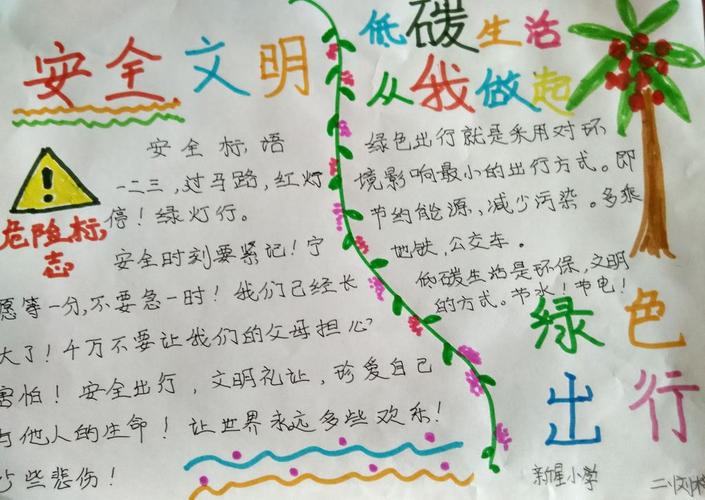 安全文明
安全标语
一二三，过马路，红灯
停！绿灯行。
危险标
志
安全时刻要紧记！宁
愿等一分，不要急一时！我们已经长
大了！千万不要让我们的父母担心？
害怕！安全出行，文明礼让，珍爱自己
与他人的生命！让世界永远多些欢乐！
少些悲伤！
低碳生活
从我做起
绿色出行就是采用对环
境影响最小的出行方式。即
节约能源、减少污染。多乘
地铁，公交车。
低碳生活是环保，文明
的方式。节水！节电！
绿色
出行
新星小学
二